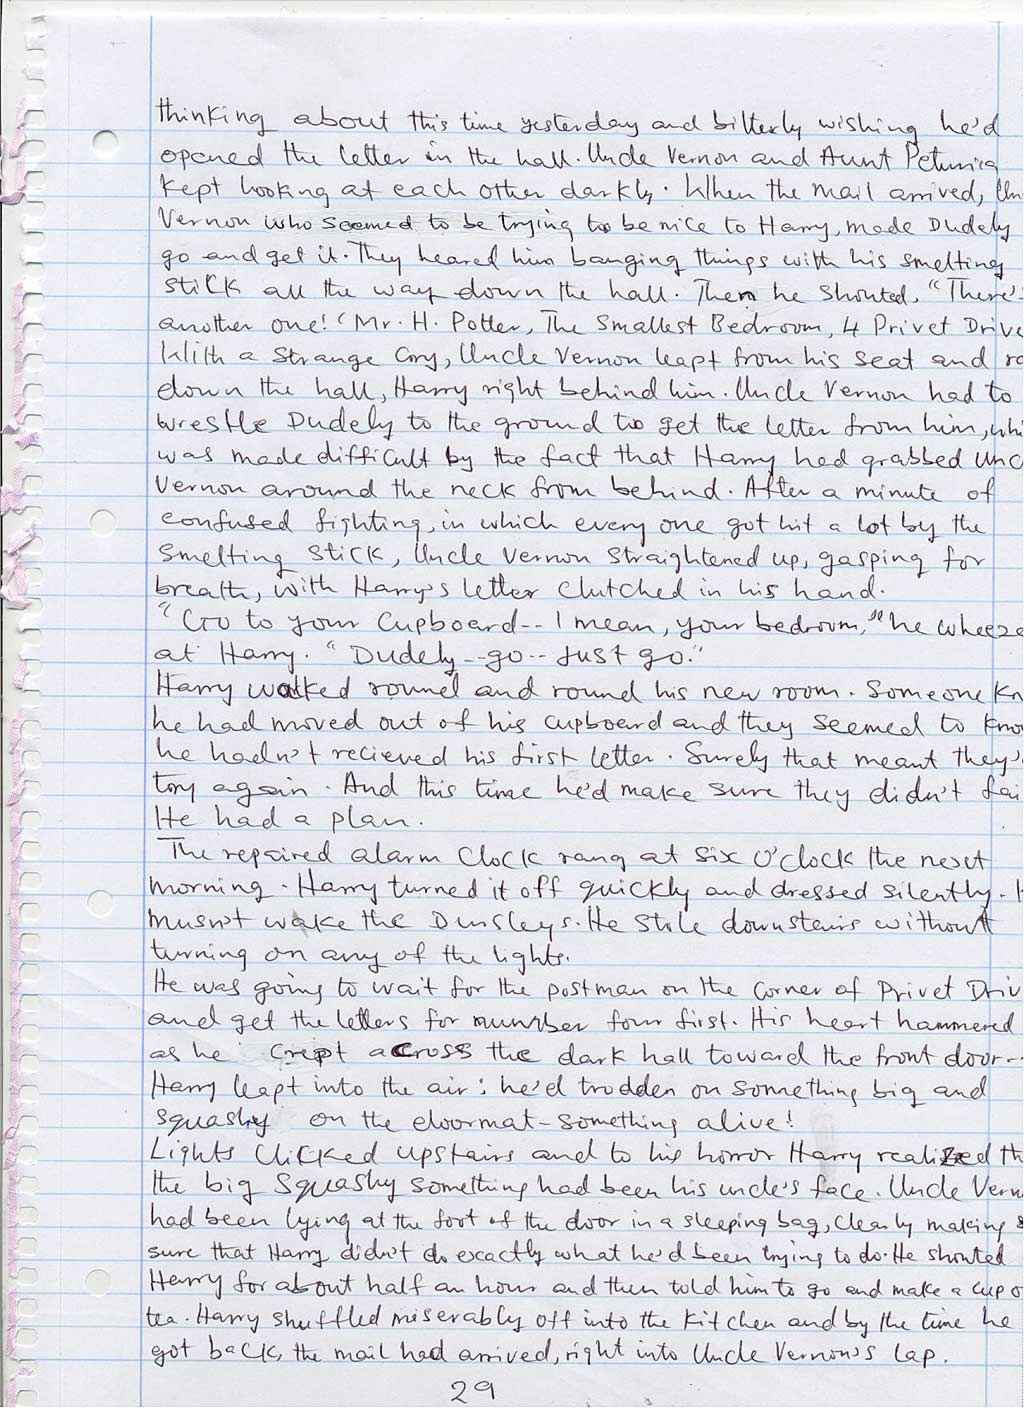 thinking about this time yesterday and bitterly wishing he'd
opened the letter in the hall. Uncle Vernon and Aunt Petunia
kept looking at each other darkly. When the mail arrived, Un
Vernon who seemed to be trying to be nice to Harry, made Dudely
go and get it. They heared him banging things with his smelting
stick all the way down the hall. Then he shouted, "There's
another one! 'Mr. H. Potter, The Smallest Bedroom, 4 Privet Drive
With a strange cry, Uncle Vernon leapt from his seat and ra
down the hall, Harry right behind him. Uncle Vernon had to
wrestle Dudely to the ground to get the letter from him, whi
was made difficult by the fact that Harry had grabbed Unc
Vernon around the neck from behind. After a minute of
confused fighting, in which every one got hit a lot by the
smelting stick, Uncle Vernon straightened up, gasping for
breath, with Harry's letter clutched in his hand.
"Go to your cupboard-- I mean, your bedroom," he wheeze
at Harry. "Dudely--go-- Just go."
Harry walked round and round his new room. Someone kn
he had moved out of his cupboard and they seemed to know
he hadn't recieved his first letter. Surely that meant they'
try again. And this time he'd make sure they didn't fai
He had a plan.
The repaired alarm clock rang at six O'clock the next
morning. Harry turned it off quickly and dressed silently. H
musn't wake the Dursleys. He stole downstairs without
turning on any of the lights.
He was going to wait for the postman on the corner of Privet Driv
and get the letters for number four first. His heart hammered
as he crept across the dark hall toward the front door--
Harry leapt into the air: he'd trodden on something big and
squashy on the doormat-something alive!
Lights clicked upstairs and to his horror Harry realized th
the big squashy something had been his uncle's face. Uncle Vern
had been lying at the foot of the door in a sleeping bag, clearly making
sure that Harry didn't do exactly what he'd been trying to do. He shouted
Harry for about half an hour and then told him to go and make a cup o
tea. Harry shuffled miserably off into the kitchen and by the time he
got back, the mail had arrived, right into Uncle Vernon's lap.
29